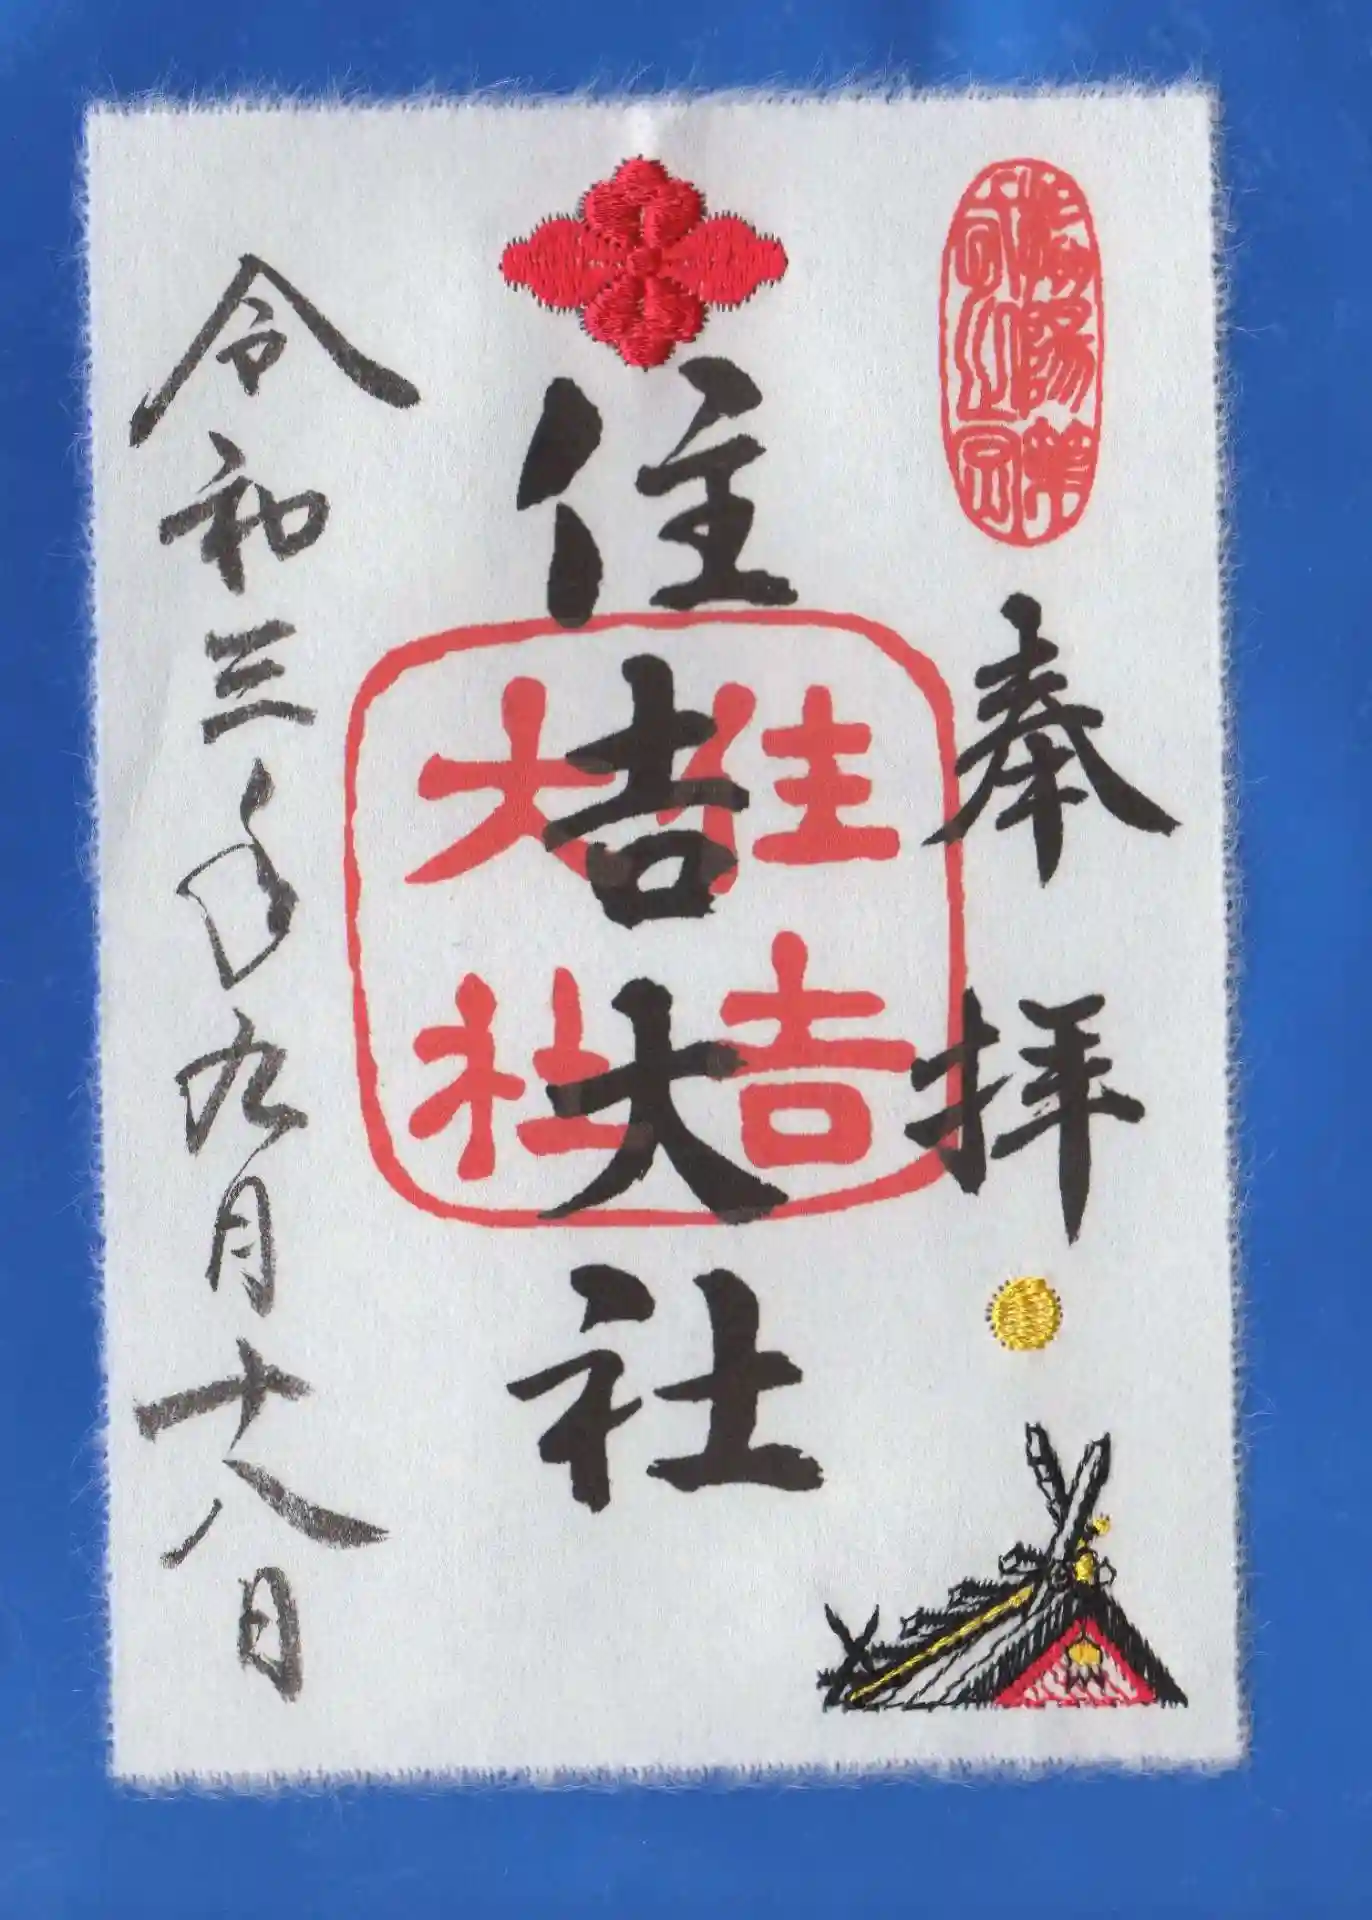 奉拝
住吉大社
住吉
大社
令和三年九月十八日